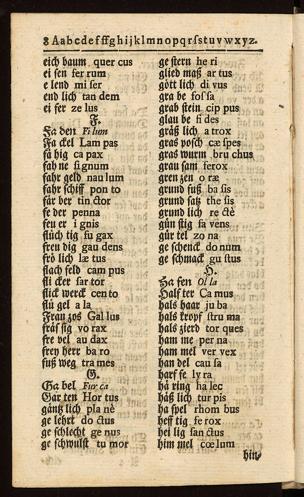 8 Aabcdefffghijklmnopqrſstuvwxyz.
eich baum quer cus
ei ſen fer rum
e lend mi ſer
end lich tan dem
ei fer ze lus
F.
Fa den Fi lum
Fa ckel Lam pas
fä hig ca pax
fah ne ſi gnum
fahr geld nau lum
fahr ſchiff pon to
fär ber tin ctor
fe der penna
feu er i gnis
flüch tig fu gax
freu dig gau dens
frö lich læ tus
flach feld cam pus
fli cker ſar tor
flick werck cen to
flü gel a la
Frau zos Gal lus
fräſ ſig vo rax
fre vel au dax
frey herr ba ro
fuß weg tra mes
G.
Ga bel Fur ca
Gar ten Hor tus
gäntz lich pla nè
ge lehrt do ctus
ge ſchlecht ge nus
ge ſchwulſt tu mor
ge ſtern he ri
glied maß ar tus
gött lich di vus
gra be foſ ſa
grab ſtein cip pus
glau be fi des
gräß lich a trox
gras poſch cæ ſpes
gras wurm bru chus
grau ſam ferox
gren zen o ræ
grund fuß ba ſis
grund ſatz the ſis
grund lich re ctè
gün ſtig fa vens
gür tel zo na
ge ſchenck do num
ge ſchmack gu ſtus
H.
Ha fen Ol la
Halff ter Ca mus
hals haar ju ba
hals kropf ſtru ma
hals zierd tor ques
ham me per na
ham mel ver vex
han del cau ſa
harf fe ly ra
hä ring ha lec
häß lich tur pis
ha ſpel rhom bus
heff tig fe rox
hei lig ſan ctus
him mel cœ lum
hin-